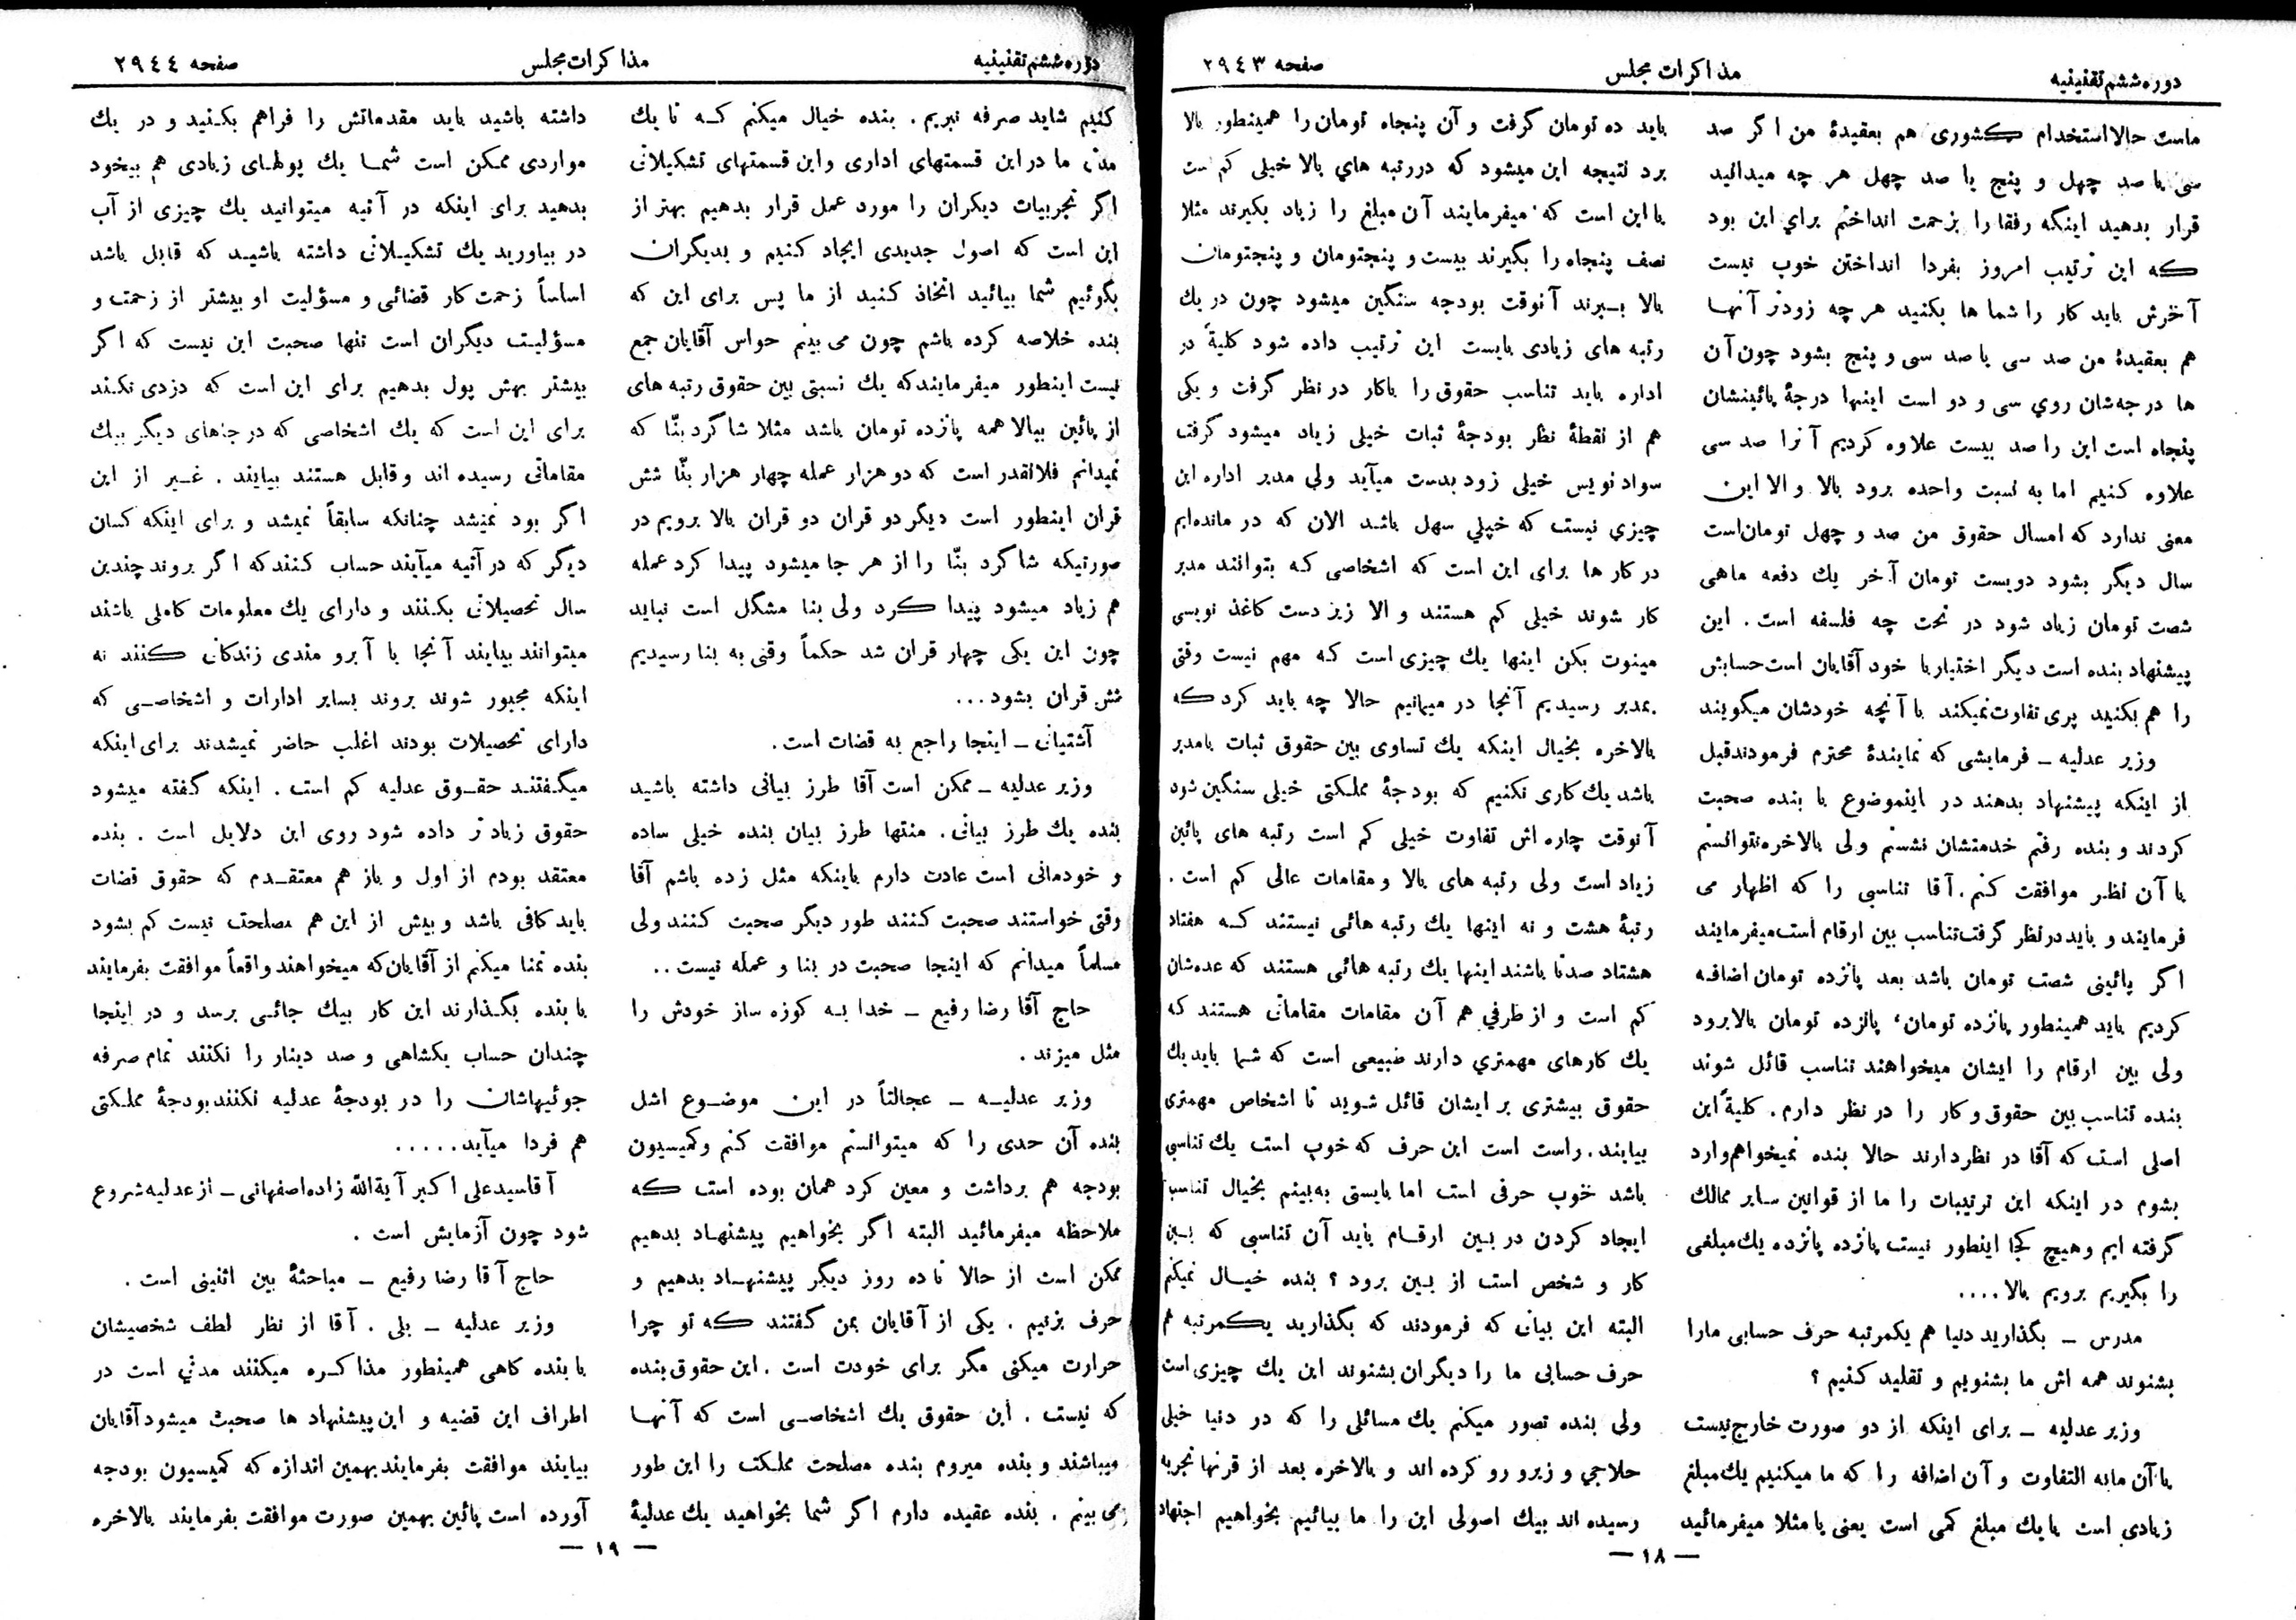 دوره ششم تقنینیه
مذاکرات مجلس
صفحه ۲۹۴۳
ماست حالا استخدام کشوری هم بعقیدهٔ من اگر صد
سی یا صد چهل و پنج یا صد چهل هر چه میدانید
قرار بدهید اینکه رفقا را بزحمت انداختم برای این بود
که این ترتیب امروز بفردا انداختن خوب نیست
آخرش باید کار را شما ها بکنید هر چه زودتر آنها
هم بعقیدهٔ من صد سی یا صد سی و پنج بشود چون آن
ها درجه‌شان روی سی و دو است اینها درجهٔ پائینشان
پنجاه است این را صد بیست علاوه کردیم آنرا صد سی
علاوه کنیم اما به نسبت واحده برود بالا والا این
معنی ندارد که امسال حقوق من صد و چهل تومان است
سال دیگر بشود دویست تومان آخر یك دفعه ماهی
شصت تومان زیاد شود در تحت چه فلسفه است . این
پیشنهاد بنده است دیگر اختیار با خود آقایان است حسابش
را هم بکنید پری تفاوت نمیکند با آنچه خودشان میگویند
وزیر عدلیه ـ فرمایشی که نمایندهٔ محترم فرمودند قبل
از اینکه پیشنهاد بدهند در اینموضوع با بنده صحبت
کردند و بنده رفتم خدمتشان نشستم ولی بالاخره نتوانستم
با آن نظر موافقت کنم . آقا تناسبی را که اظهار می
فرمایند و باید در نظر گرفت تناسب بین ارقام است میفرمایند
اگر پائینی شصت تومان باشد بعد پانزده تومان اضافه
کردیم باید همینطور پانزده تومان، پانزده تومان بالا برود
ولی بین ارقام را ایشان میخواهند تناسب قائل شوند
بنده تناسب بین حقوق و کار را در نظر دارم . کلیةً این
اصلی است که آقا در نظر دارند حالا بنده نمیخواهم وارد
بشوم در اینکه این ترتیبات را ما از قوانین سایر ممالك
گرفته ایم و هیچ کجا اینطور نیست پانزده پانزده یك مبلغی
را بگیریم برویم بالا . . . .
مدرس ـ بگذارید دنیا هم یکمرتبه حرف حسابی مارا
بشنوند همه اش ما بشنویم و تقلید کنیم ؟
وزیر عدلیه ـ برای اینکه از دو صورت خارج نیست
یا آن مابه التفاوت و آن اضافه را که ما میکنیم یك مبلغ
زیادی است یا یك مبلغ کمی است یعنی یا مثلا میفرمائید
باید ده تومان گرفت و آن پنجاه تومان را همینطور بالا
برد نتیجه این میشود که در رتبه های بالا خیلی کم است
یا این است که میفرمایند آن مبلغ را زیاد بگیرند مثلا
نصف پنجاه را بگیرند بیست و پنجتومان و پنجتومان
بالا ببرند آنوقت بودجه سنگین میشود چون در یك
رتبه های زیادی بایست این ترتیب داده شود کلیةً در
اداره باید تناسب حقوق را باکار در نظر گرفت و یکی
هم از نقطهٔ نظر بودجهٔ ثبات خیلی زیاد میشود گرفت
سواد نویس خیلی زود بدست میآید ولی مدیر اداره این
چیزی نیست که خیلی سهل باشد الان که در مانده‌ایم
در کار ها برای این است که اشخاصی که بتوانند مدیر
کار شوند خیلی کم هستند و الا زیر دست کاغذ نویسی
مینوت بکن اینها یك چیزی است که مهم نیست وقتی
بمدیر رسیدیم آنجا در میمانیم حالا چه باید کرد که
بالاخره بخیال اینکه یك تساوی بین حقوق ثبات با مدیر
باشد یك کاری نکنیم که بودجهٔ مملکتی خیلی سنگین شود
آنوقت چاره اش تفاوت خیلی کم است رتبه های پائین
زیاد است ولی رتبه های بالا و مقامات عالی کم است .
رتبهٔ هشت و نه اینها یك رتبه هائی نیستند که هفتاد
هشتاد صدتا باشند اینها یك رتبه هائی هستند که عده‌شان
کم است و از طرفی هم آن مقامات مقاماتی هستند که
یك کارهای مهمتری دارند طبیعی است که شما باید یك
حقوق بیشتری بر ایشان قائل شوید تا اشخاص مهمتری
بیایند . راست است این حرف که خوب است یك تناسبی
باشد خوب حرفی است اما بایستی به‌بینم بخیال تناسب
ایجاد کردن در بین ارقام باید آن تناسبی که بین
کار و شخص است از بین برود ؟ بنده خیال نمیکنم
البته این بیان که فرمودند که بگذارید یکمرتبه هم
حرف حسابی ما را دیگران بشنوند این یك چیزی است
ولی بنده تصور میکنم یك مسائلی را که در دنیا خیلی
حلاجی و زیر و رو کرده اند و بالاخره بعد از قرنها تجربه
رسیده اند بیك اصولی این را ما بیائیم بخواهیم اجتهاد
ـ ۱۸ ـ
دوره ششم تقنینیه
مذاکرات مجلس
صفحه ۲۹۴۴
کنیم شاید صرفه نبریم . بنده خیال میکنم که تا یك
مدتی ما در این قسمتهای اداری و این قسمتهای تشکیلاتی
اگر تجربیات دیگران را مورد عمل قرار بدهیم بهتر از
این است که اصول جدیدی ایجاد کنیم و بدیگران
بگوئیم شما بیائید اتخاذ کنید از ما پس برای این که
بنده خلاصه کرده باشم چون می بینم حواس آقایان جمع
نیست اینطور میفرمایند که یك نسبتی بین حقوق رتبه های
از پائین ببالا همه پانزده تومان باشد مثلا شاگرد بنّا که
نمیدانم فلانقدر است که دو هزار عمله چهار هزار بنّا شش
قران اینطور است دیگر دو قران دو قران بالا برویم در
صورتیکه شاگرد بنّا را از هر جا میشود پیدا کرد عمله
هم زیاد میشود پیدا کرد ولی بنا مشکل است نباید
چون این یکی چهار قران شد حکماً وقتی به بنا رسیدیم
شش قران بشود . . .
آشتیانی ـ اینجا راجع به قضات است .
وزیر عدلیه ـ ممکن است آقا طرز بیانی داشته باشید
بنده یك طرز بیانی . منتها طرز بیان بنده خیلی ساده
و خودمانی است عادت دارم باینکه مثل زده باشم آقا
وقتی خواستند صحبت کنند طور دیگر صحبت کنند ولی
مسلماً میدانم که اینجا صحبت در بنا و عمله نیست . .
حاج آقا رضا رفیع ـ خدا به کوزه ساز خودش را
مثل میزند .
وزیر عدلیه ـ عجالتاً در این موضوع اشل
بنده آن حدی را که میتوانستم موافقت کنم و کمیسیون
بودجه هم برداشت و معین کرد همان بوده است که
ملاحظه میفرمائید البته اگر بخواهیم پیشنهاد بدهیم
ممکن است از حالا تا ده روز دیگر پیشنهاد بدهیم و
حرف بزنیم . یکی از آقایان بمن گفتند که تو چرا
حرارت میکنی مگر برای خودت است . این حقوق بنده
که نیست . این حقوق یك اشخاصی است که آنها
میباشند و بنده میروم بنده مصلحت مملکت را این طور
می بینم . بنده عقیده دارم اگر شما بخواهید یك عدلیهٔ
داشته باشید باید مقدماتش را فراهم بکنید و در یك
مواردی ممکن است شما یك پولهای زیادی هم بیخود
بدهید برای اینکه در آتیه میتوانید یك چیزی از آب
در بیاورید یك تشکیلاتی داشته باشید که قابل باشد
اساساً زحمت کار قضائی و مسؤلیت او بیشتر از زحمت و
مسؤلیت دیگران است تنها صحبت این نیست که اگر
بیشتر بهش پول بدهیم برای این است که دزدی نکند
برای این است که یك اشخاصی که در جاهای دیگر بیك
مقاماتی رسیده اند و قابل هستند بیایند . غیر از این
اگر بود نمیشد چنانکه سابقاً نمیشد و برای اینکه کسان
دیگر که در آتیه میآیند حساب کنند که اگر بروند چندین
سال تحصیلاتی بکنند و دارای یك معلومات کاملی باشند
میتوانند بیایند آنجا با آبرو مندی زندگانی کنند نه
اینکه مجبور شوند بروند بسایر ادارات و اشخاصی که
دارای تحصیلات بودند اغلب حاضر نمیشدند برای اینکه
میگفتند حقوق عدلیه کم است . اینکه گفته میشود
حقوق زیادتر داده شود روی این دلایل است . بنده
معتقد بودم از اول و باز هم معتقدم که حقوق قضات
باید کافی باشد و بیش از این هم مصلحت نیست کم بشود
بنده تمنا میکنم از آقایان که میخواهند واقعاً موافقت بفرمایند
با بنده بگذارند این کار بیك جائی برسد و در اینجا
چندان حساب یکشاهی و صد دینار را نکنند تمام صرفه
جوئیهاشان را در بودجهٔ عدلیه نکنند بودجهٔ مملکتی
هم فردا میآید . . . . .
آقا سید علی اکبر آیةالله زاده اصفهانی ـ از عدلیه شروع
شود چون آزمایش است .
حاج آقا رضا رفیع ـ مباحثهٔ بین اثنینی است .
وزیر عدلیه ـ بلی . آقا از نظر لطف شخصیشان
با بنده گاهی همینطور مذاکره میکنند مدتی است در
اطراف این قضیه و این پیشنهاد ها صحبت میشود آقایان
بیایند موافقت بفرمایند بهمین اندازه که کمیسیون بودجه
آورده است پائین بهمین صورت موافقت بفرمایند بالاخره
ـ ۱۹ ـ